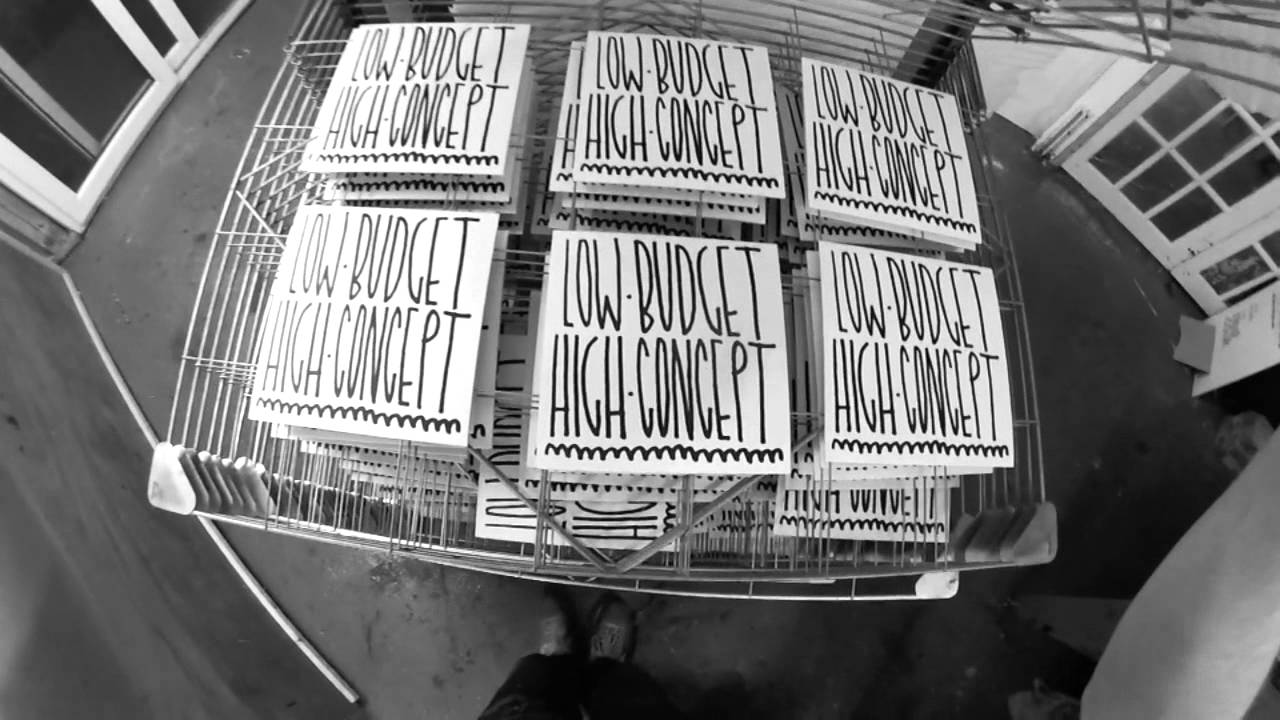 LOW·BUDGET
HIGH·CONCEPT
LOW·BUDGET
HIGH·CONCEPT
LOW·BUDGET
HIGH·CONCEPT
LOW·BUDGET
HIGH·CONCEPT
LOW·BUDGET
HIGH·CONCEPT
LOW·BUDGET
HIGH·CONCEPT
HIGH·CONCEPT